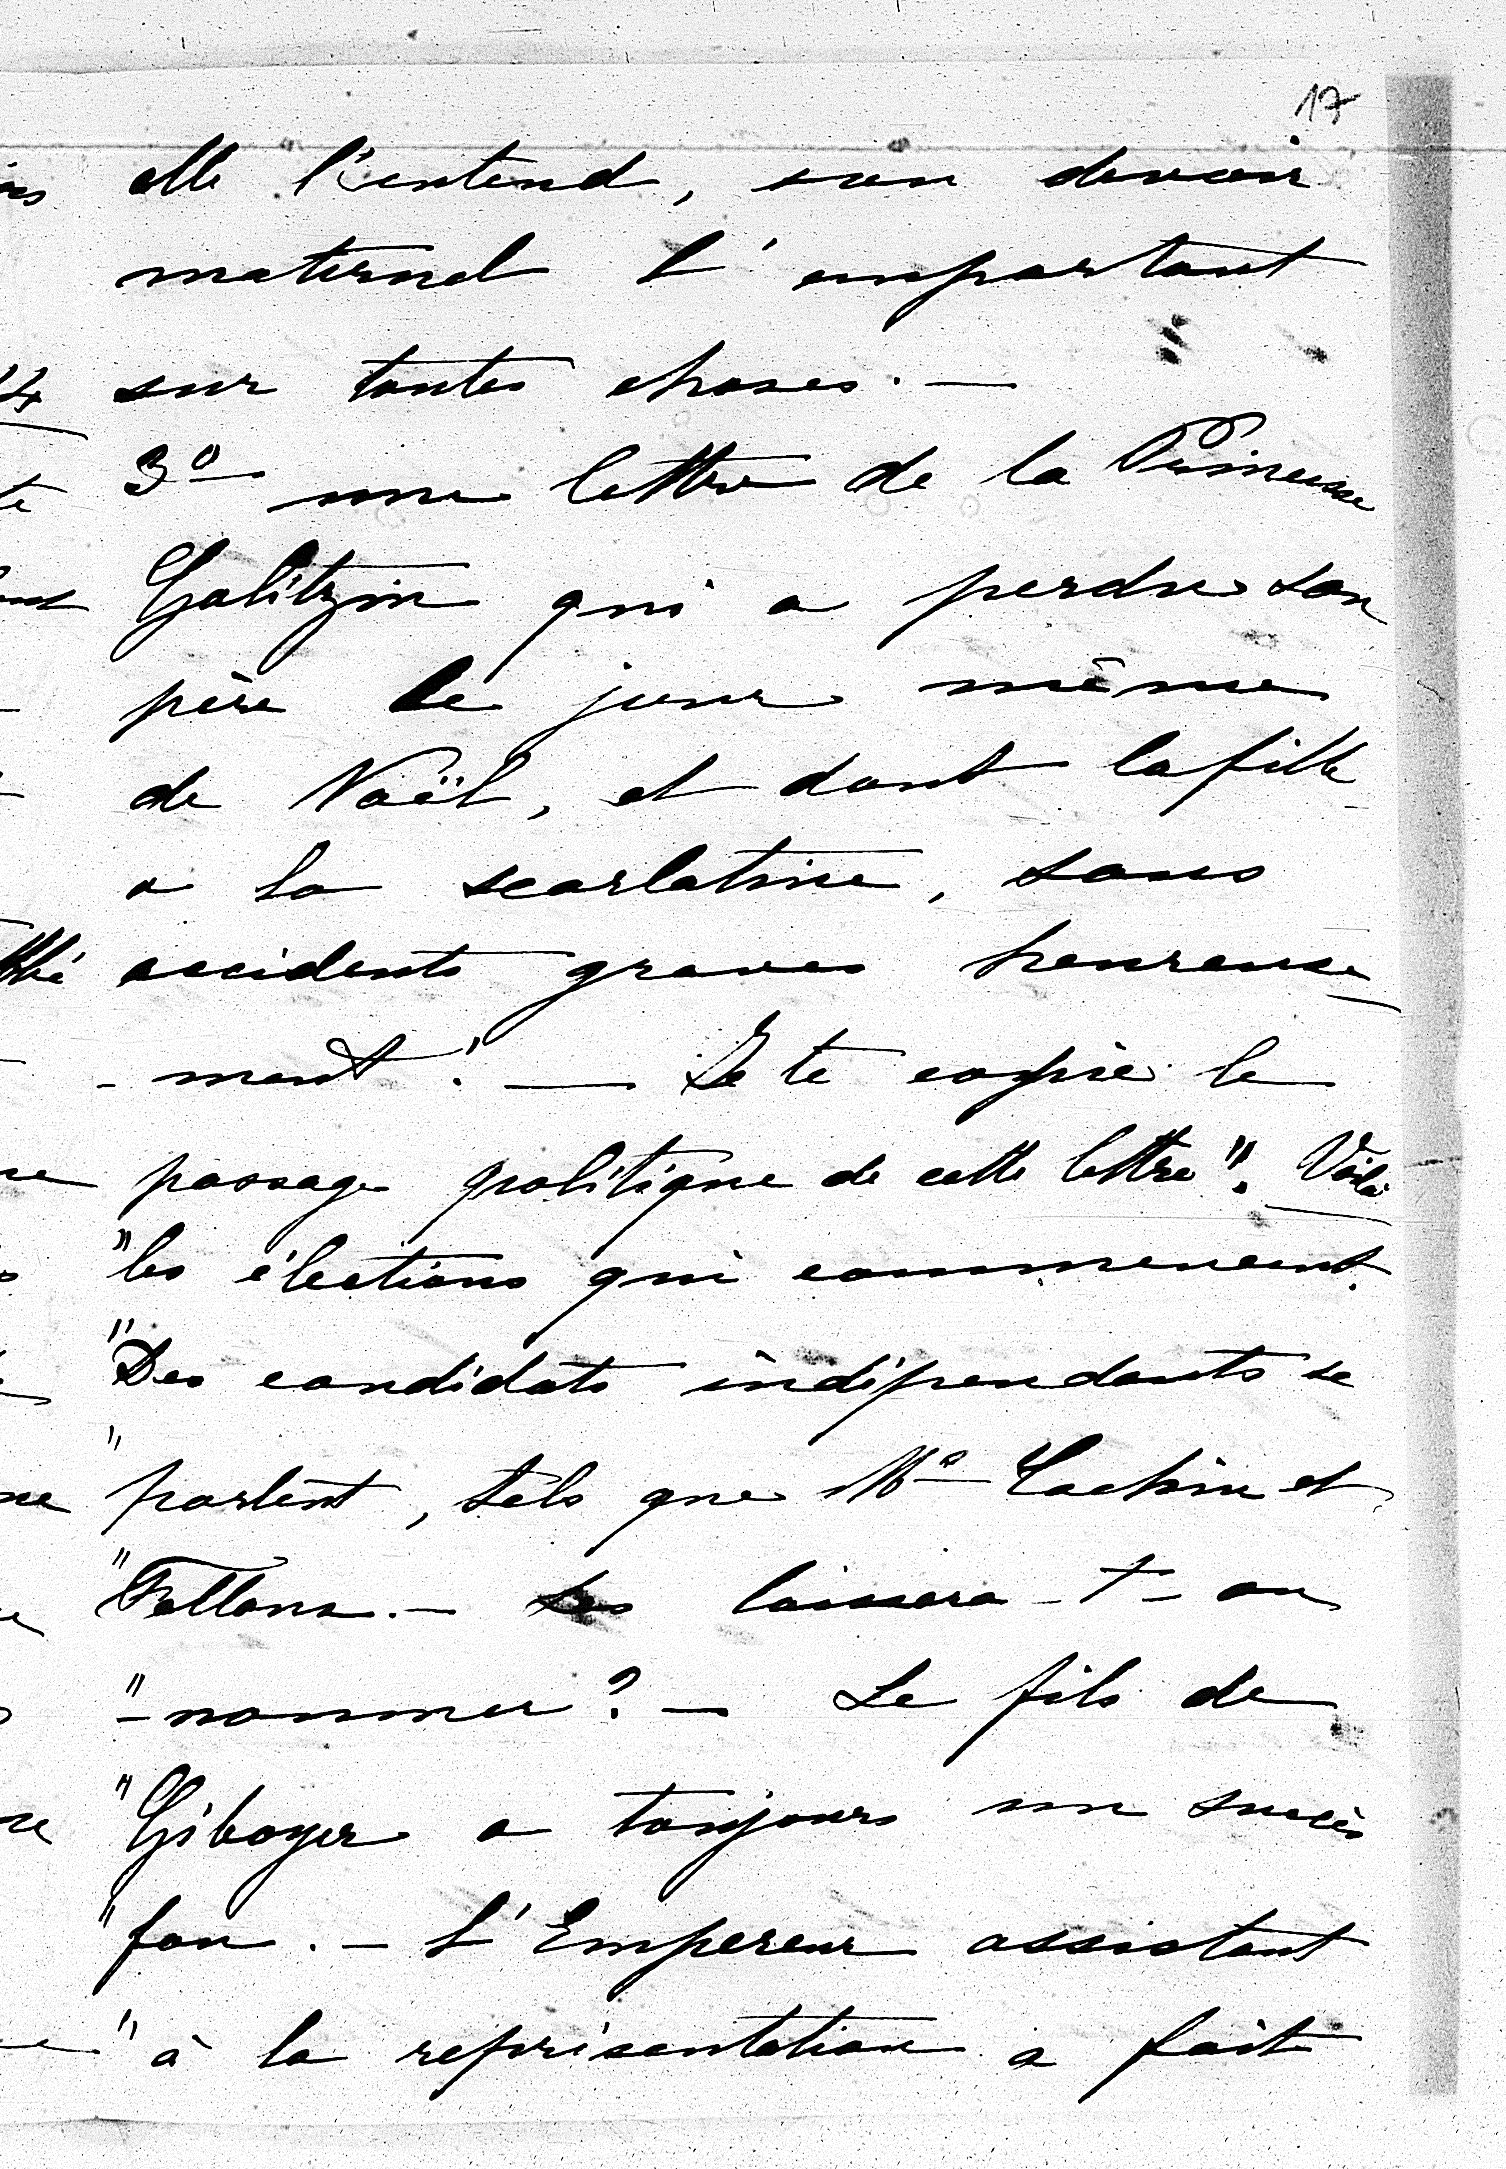 17
elle l'entend, son devoir
maternel l'emportant
sur toutes choses. —
3° une lettre de la Princesse
Galitzin qui a perdu son
père le jour même
de Noël, et dont la fille
a la scarlatine, sans
accidents graves heureuse
- ment ! — Je te copie le
passage politique de cette lettre". Voilà
"les élections qui commencent.
"Des candidats indépendants se
"portent, tels que Mr Cochin et
"Fellona. — Les laissera-t-on
"-nommer ? — Le fils de
"Giboyer a toujours un succès
"fou. — L'Empereur assistant
"à la représentation a fait